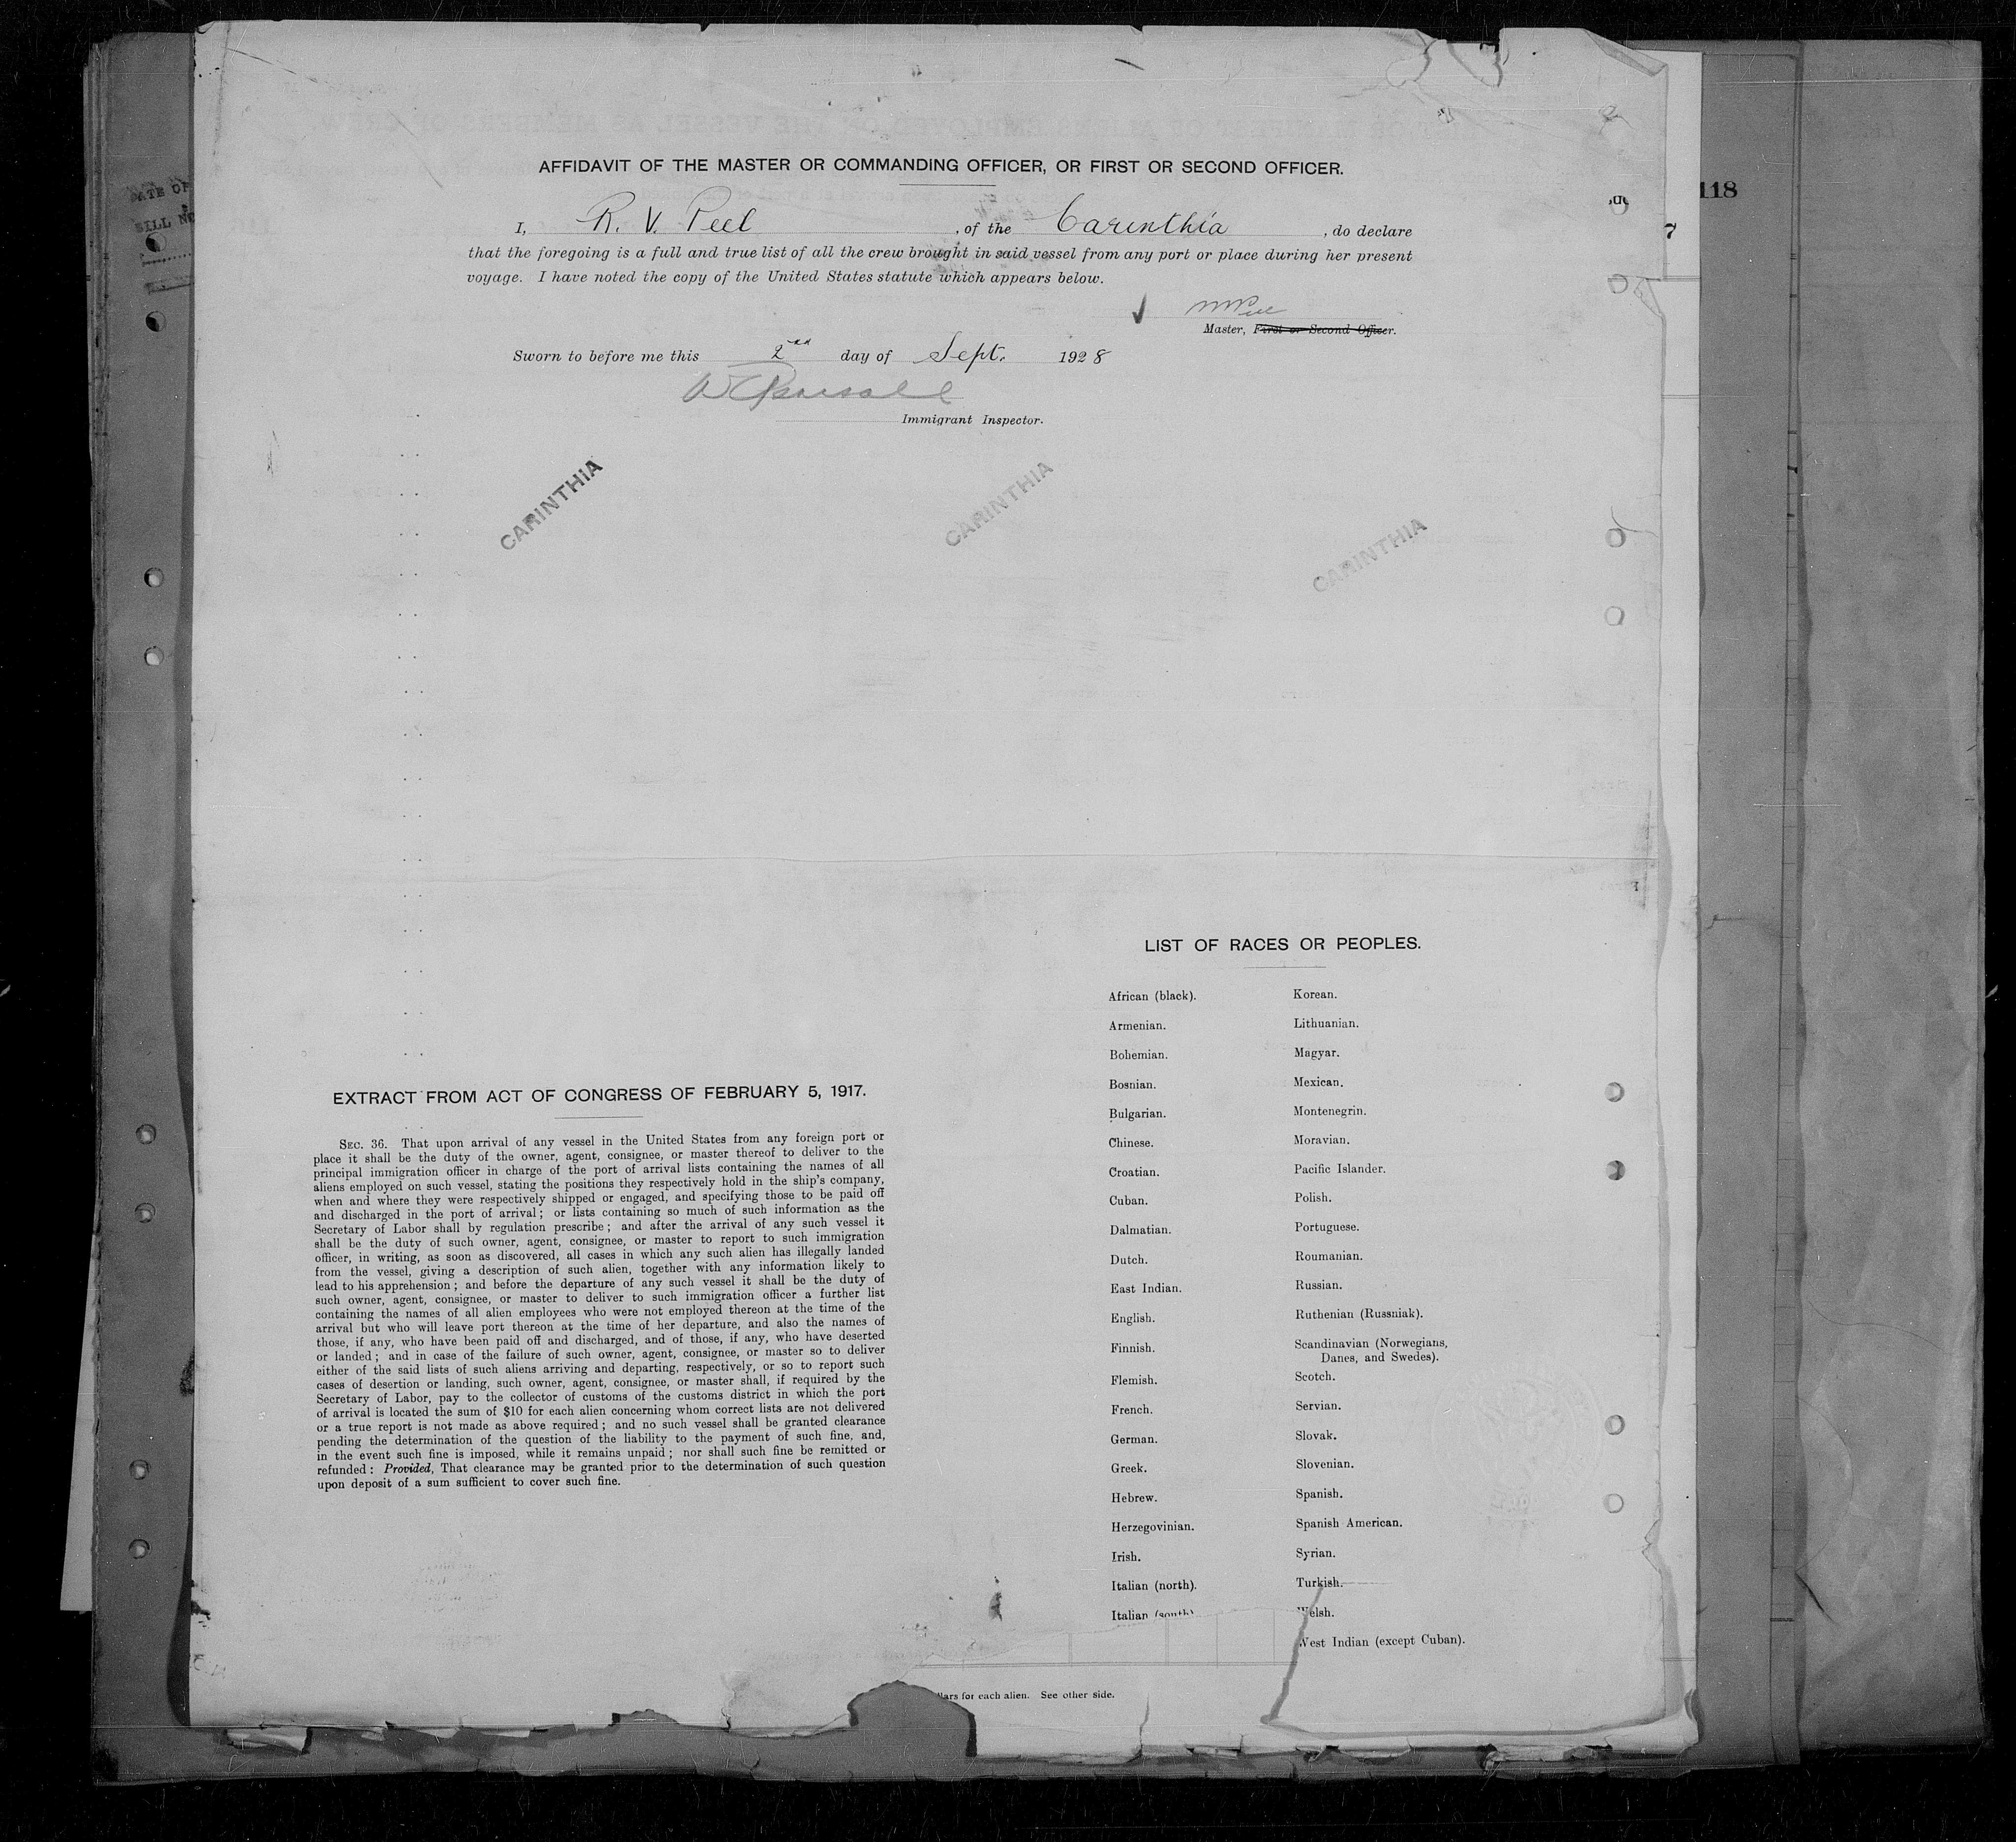 AFFIDAVIT OF THE MASTER OR COMMANDING OFFICER, OR FIRST OR SECOND OFFICER.
I, R. V. Peel, of the Carinthia, do declare
that the foregoing is a full and true list of all the crew brought in said vessel from any port or place during her present
voyage. I have noted the copy of the United States statute which appears below.
Master, First or Second Officer.
Sworn to before me this 2nd day of Sept. 1928
Immigrant Inspector.
CARINTHIA
CARINTHIA
CARINTHIA
118
7
EXTRACT FROM ACT OF CONGRESS OF FEBRUARY 5, 1917.
SEC. 36. That upon arrival of any vessel in the United States from any foreign port or
place it shall be the duty of the owner, agent, consignee, or master thereof to deliver to the
principal immigration officer in charge of the port of arrival lists containing the names of all
aliens employed on such vessel, stating the positions they respectively hold in the ship's company,
when and where they were respectively shipped or engaged, and specifying those to be paid off
and discharged in the port of arrival; or lists containing so much of such information as the
Secretary of Labor shall by regulation prescribe; and after the arrival of any such vessel it
shall be the duty of such owner, agent, consignee, or master to report to such immigration
officer, in writing, as soon as discovered, all cases in which any such alien has illegally landed
from the vessel, giving a description of such alien, together with any information likely to
lead to his apprehension; and before the departure of any such vessel it shall be the duty of
such owner, agent, consignee, or master to deliver to such immigration officer a further list
containing the names of all alien employees who were not employed thereon at the time of the
arrival but who will leave port thereon at the time of her departure, and also the names of
those, if any, who have been paid off and discharged, and of those, if any, who have deserted
or landed; and in case of the failure of such owner, agent, consignee, or master so to deliver
either of the said lists of such aliens arriving and departing, respectively, or so to report such
cases of desertion or landing, such owner, agent, consignee, or master shall, if required by the
Secretary of Labor, pay to the collector of customs of the customs district in which the port
of arrival is located the sum of $10 for each alien concerning whom correct lists are not delivered
or a true report is not made as above required; and no such vessel shall be granted clearance
pending the determination of the question of the liability to the payment of such fine, and,
in the event such fine is imposed, while it remains unpaid; nor shall such fine be remitted or
refunded: Provided, That clearance may be granted prior to the determination of such question
upon deposit of a sum sufficient to cover such fine.
LIST OF RACES OR PEOPLES.
African (black).
Armenian.
Bohemian.
Bosnian.
Bulgarian.
Chinese.
Croatian.
Cuban.
Dalmatian.
Dutch.
East Indian.
English.
Finnish.
Flemish.
French.
German.
Greek.
Hebrew.
Herzegovinian.
Irish.
Italian (north).
Italian (south)
Korean.
Lithuanian.
Magyar.
Mexican.
Montenegrin.
Moravian.
Pacific Islander.
Polish.
Portuguese.
Roumanian.
Russian.
Ruthenian (Russniak).
Scandinavian (Norwegians,
Danes, and Swedes).
Scotch.
Servian.
Slovak.
Slovenian.
Spanish.
Spanish American.
Syrian.
Turkish.
Welsh.
West Indian (except Cuban).
for each alien. See other side.